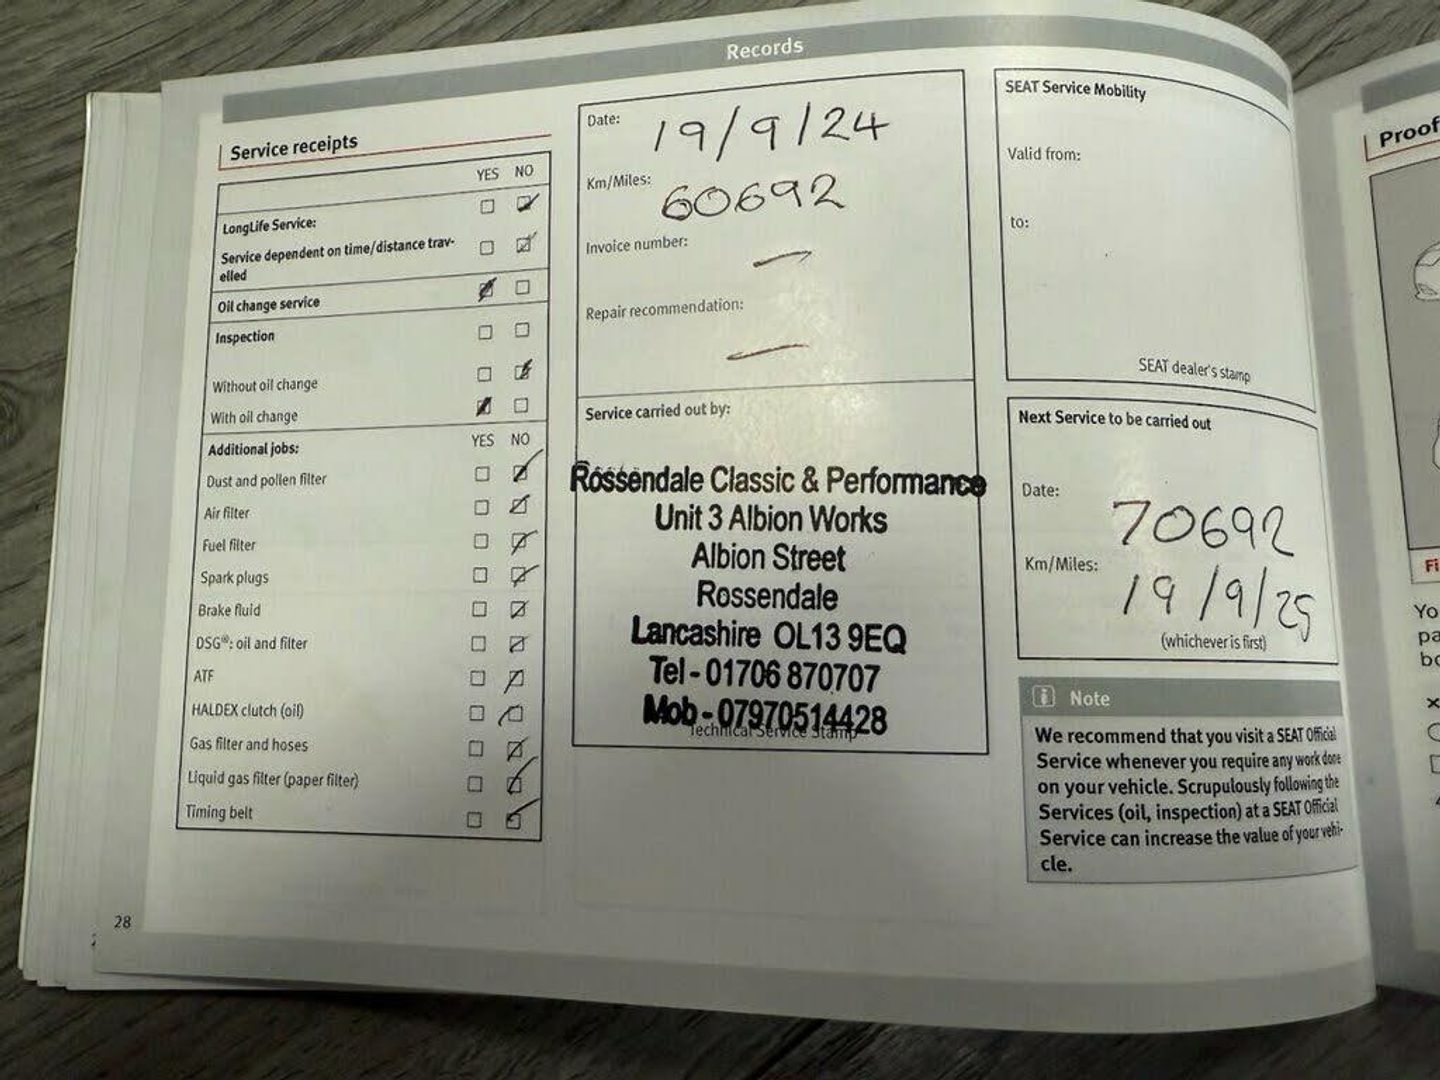 Records
Service receipts
YES NO
LongLife Service:
Service dependent on time/distance trav-
elled
Oil change service
Inspection
Without oil change
With oil change
Additional jobs: YES NO
Dust and pollen filter
Air filter
Fuel filter
Spark plugs
Brake fluid
DSG®: oil and filter
ATF
HALDEX clutch (oil)
Gas filter and hoses
Liquid gas filter (paper filter)
Timing belt
28
Date: 19/9/24
Km/Miles: 60692
Invoice number: —
Repair recommendation: —
Service carried out by:
Rossendale Classic & Performance
Unit 3 Albion Works
Albion Street
Rossendale
Lancashire OL13 9EQ
Tel - 01706 870707
Mob - 07970514428
Technical Service Stamp
SEAT Service Mobility
Valid from:
to:
SEAT dealer's stamp
Next Service to be carried out
Date: 70692
Km/Miles: 19/9/25
(whichever is first)
i Note
We recommend that you visit a SEAT Official
Service whenever you require any work done
on your vehicle. Scrupulously following the
Services (oil, inspection) at a SEAT Official
Service can increase the value of your vehi-
cle.
Proof
Fi
Yo
pa
bo